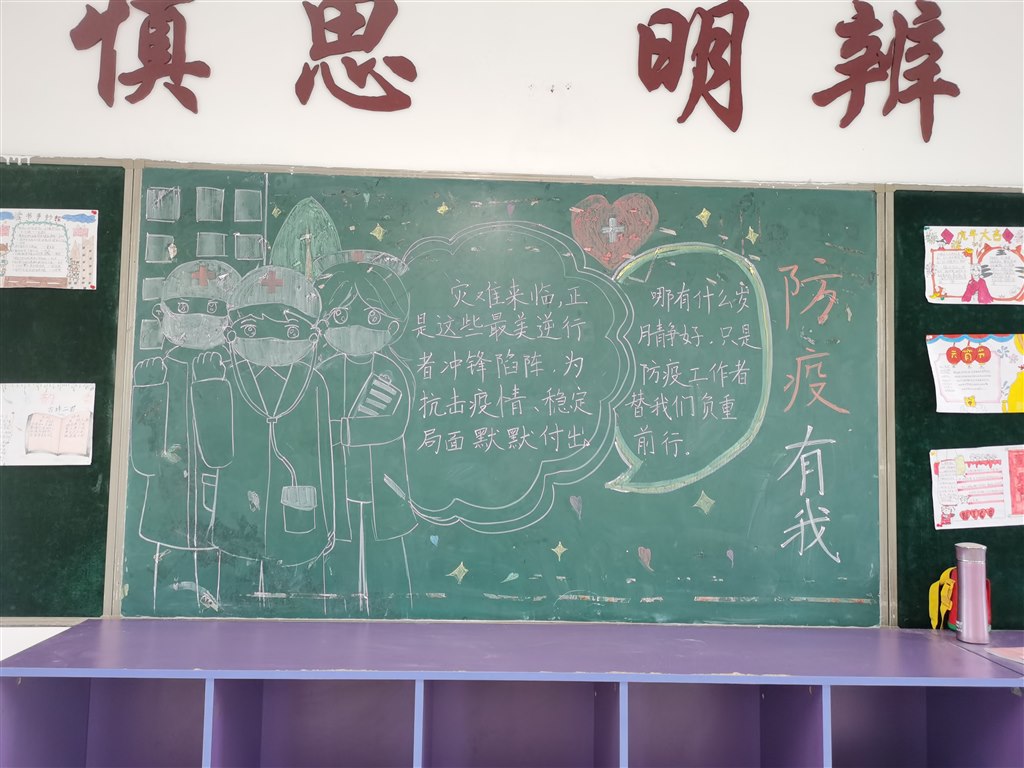 慎思 明辨
灾难来临,正
是这些最美逆行
者冲锋陷阵,为
抗击疫情、稳定
局面默默付出。
哪有什么岁
月静好,只是
防疫工作者
替我们负重
前行。
防疫有我
虎年大吉
元宵节